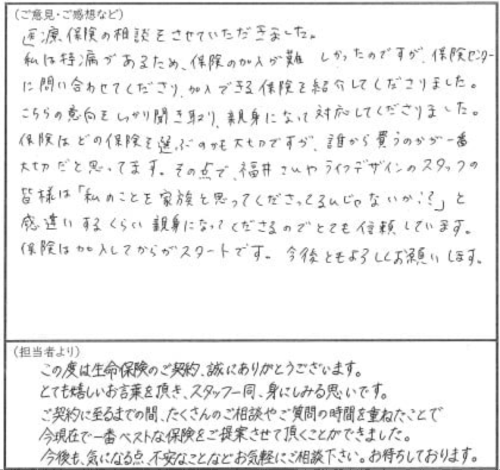 (ご意見・ご感想など)
医療保険の相談をさせていただきました。
私は持病があるため、保険の加入が難しかったのですが、保険センター
に問い合わせてくださり、加入できる保険を紹介してくださりました。
こちらの意向をしっかり聞き取り、親身になって対応してくださりました。
保険はどの保険を選ぶのかも大切ですが、誰から買うのかが一番
大切だと思ってます。その点で、福井さんやライフデザインのスタッフの
皆様は「私のことを家族と思ってくださってるんじゃないか!?」と
感違いするくらい親身になってくださるのでとても信頼しています。
保険は加入してからがスタートです。今後ともよろしくお願いします。
(担当者より)
この度は生命保険のご契約、誠にありがとうございます。
とても嬉しいお言葉を頂き、スタッフ一同、身にしみる思いです。
ご契約に至るまでの間、たくさんのご相談やご質問の時間を重ねたことで
今現在で一番ベストな保険をご提案させて頂くことができました。
今後も、気になる点、不安なことなどお気軽にご相談下さい。お待ちしております。